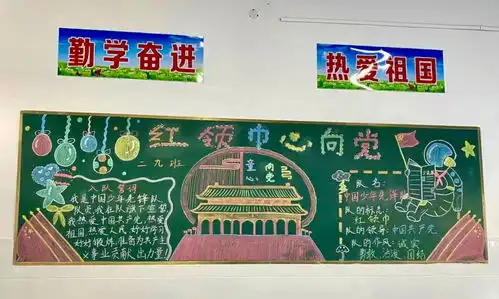 勤学奋进
热爱祖国
红领巾心向党
二九班
童心
向党
入队誓词
我是中国少年先锋队
队员,我在队旗下宣誓
我热爱中国共产党,热爱
祖国,热爱人民,好好学习
好好锻炼,准备着:为共产主
义事业贡献出力量!
队名:
中国少年先锋队
队的标志:
红领巾
队的领导:中国共产党
队的作风:诚实
勇敢、活泼、团结